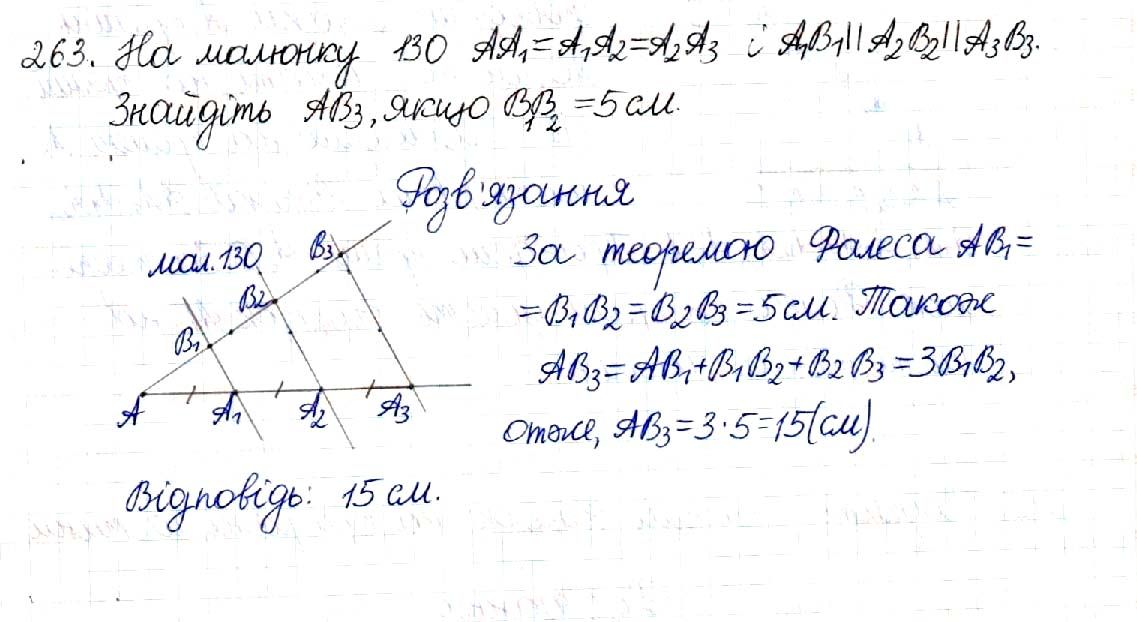 263. На малюнку 130 AA₁=A₁A₂=A₂A₃ і A₁B₁||A₂B₂||A₃B₃.
Знайдіть AB₃, якщо B₁B₂=5см.
Розв'язання
мал.130
B₃
B₂
B₁
A A₁ A₂ A₃
За теоремою Фалеса AB₁=
=B₁B₂=B₂B₃=5см. Також
AB₃=AB₁+B₁B₂+B₂B₃=3B₁B₂,
отже, AB₃=3·5=15(см).
Відповідь: 15 см.